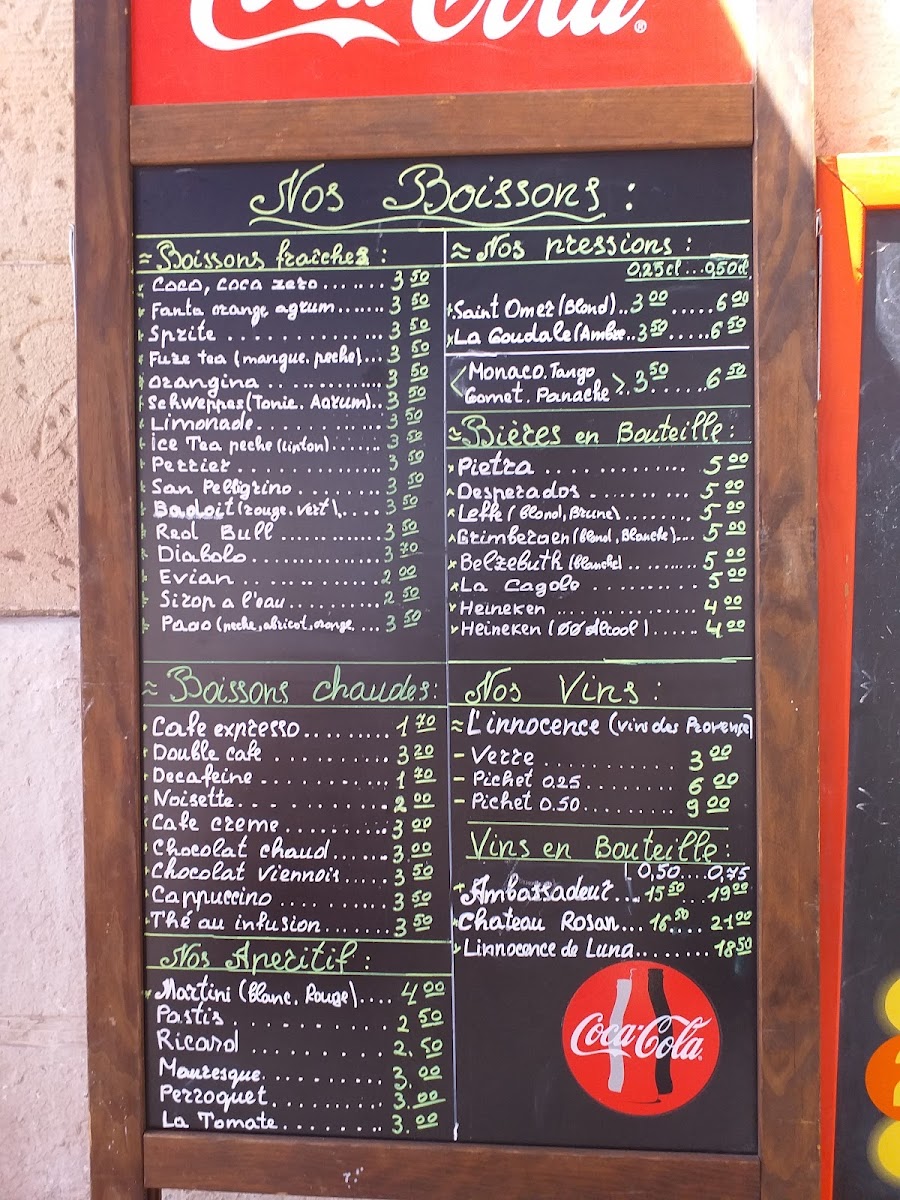 Coca-Cola®
Nos Boissons :
≈ Boissons fraîches :
Coca, coca zero....... 3 50
Fanta orange agrum....... 3 50
Sprite .............. 3 50
Fuze tea (mangue. peche).... 3 50
Orangina .............. 3 50
Schweppes (Tonic. Agrum).. 3 50
Limonade.............. 3 50
Ice Tea peche (Linton)....... 3 50
Perrier .............. 3 50
San Pelligrino ......... 3 50
Badoit (rouge. vert)..... 3 50
Red Bull .............. 3 50
Diabolo .............. 3 70
Evian .............. 2 00
Sirop a l'eau............ 2 50
Pago (peche, abricot, orange.... 3 50
≈ Boissons chaudes:
Cafe expresso .......... 1 70
Double cafe ............ 3 20
Decafeine .............. 1 70
Noisette.............. 2 00
Cafe creme ............ 3 00
Chocolat chaud....... 3 00
Chocolat viennois ...... 3 50
Cappuccino .......... 3 50
Thé au infusion....... 3 50
Nos Aperitif :
Martini (Blanc. Rouge).... 4 00
Pastis .............. 2 50
Ricard .............. 2. 50
Mauresque.......... 3. 00
Perroquet.......... 3. 00
La Tomate.......... 3. 00
≈ Nos pressions :
0,25cl ...0,50cl
Saint Omer (Blond).. 3 00 ..... 6 00
La Goudale (Ambre.. 3 50 ..... 6 50
Monaco. Tango
Gomet. Panache .. 3 50 ...... 6 50
≈ Bières en Bouteille :
Pietra .............. 5 00
Desperados .......... 5 00
Leffe (Blond, Brune)........ 5 00
Grimbergen (Blond, Blanche).... 5 00
Belzebuth (Blanche) .......... 5 00
La Cagole .............. 5 00
Heineken .............. 4 00
Heineken (00 Alcool)...... 4 00
Nos Vins :
≈ L'innocence (vin des Provence)
- Verre .............. 3 00
- Pichet 0.25 .......... 6 00
- Pichet 0.50.......... 9 00
Vins en Bouteille :
0,50....0,75
Ambassadeur.... 15 50 ... 19 00
Chateau Rosan... 16 50 .... 21 00
Linnocence de Luna........ 18 50
Coca-Cola